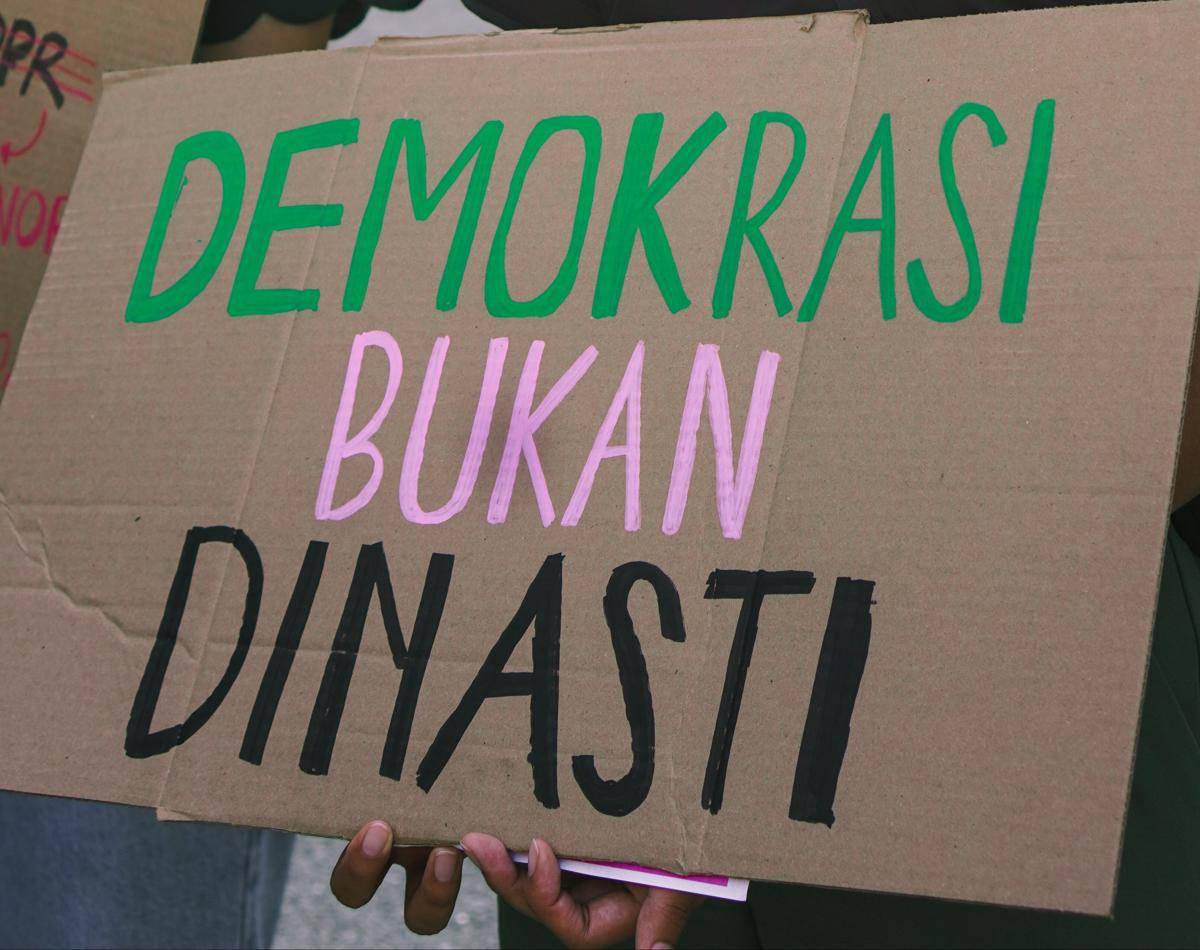 DEMOKRASI
BUKAN
DINASTI